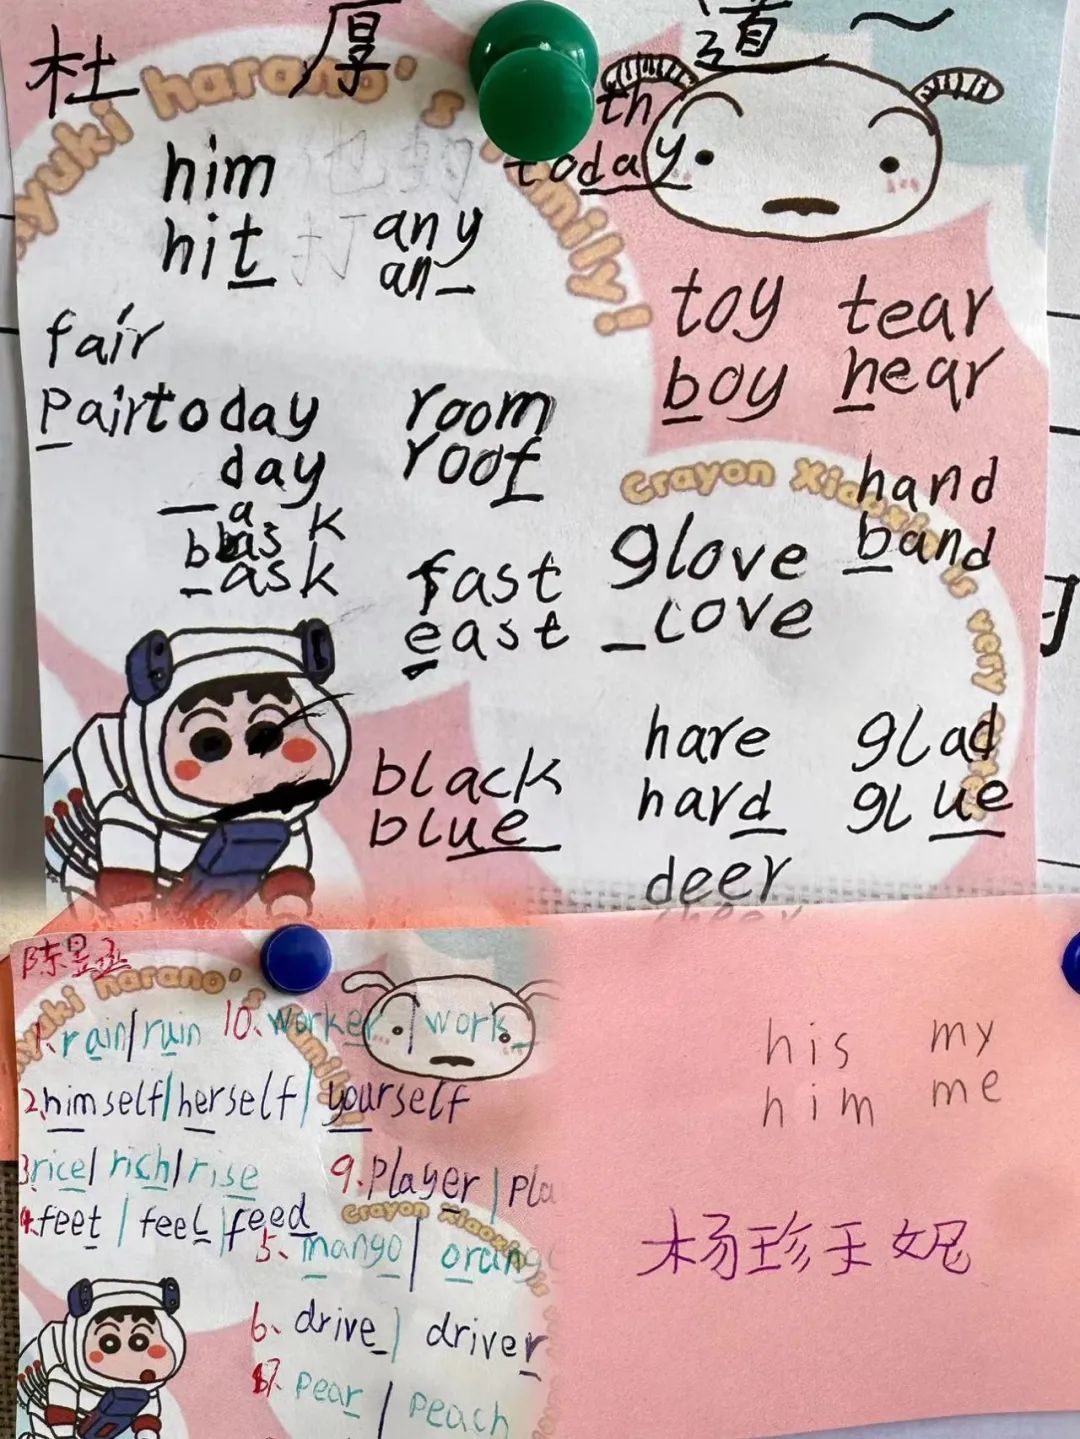 杜 厚 道 ~
ayuki harano's family!
him 他的
hit 打
any
an_
th
today
fair
pair
today
day
toy
boy
tear
hear
room
roof
hand
band
bask
_ask
fast
east
glove
_love
Crayon Xiaoxin is very
black
blue
hare
hard
glad
glue
deer
陈昱丞
yuki harano's family
1. rain/ruin
10. worker/work_
2. himself/herself/yourself
3. rice/rich/rise
9. player/pla
4. feet/feel/feed
Crayon Xiaoxin
5. mango/orang
6. drive_/driver
7. pear/peach
his
him
my
me
杨珍禾妮